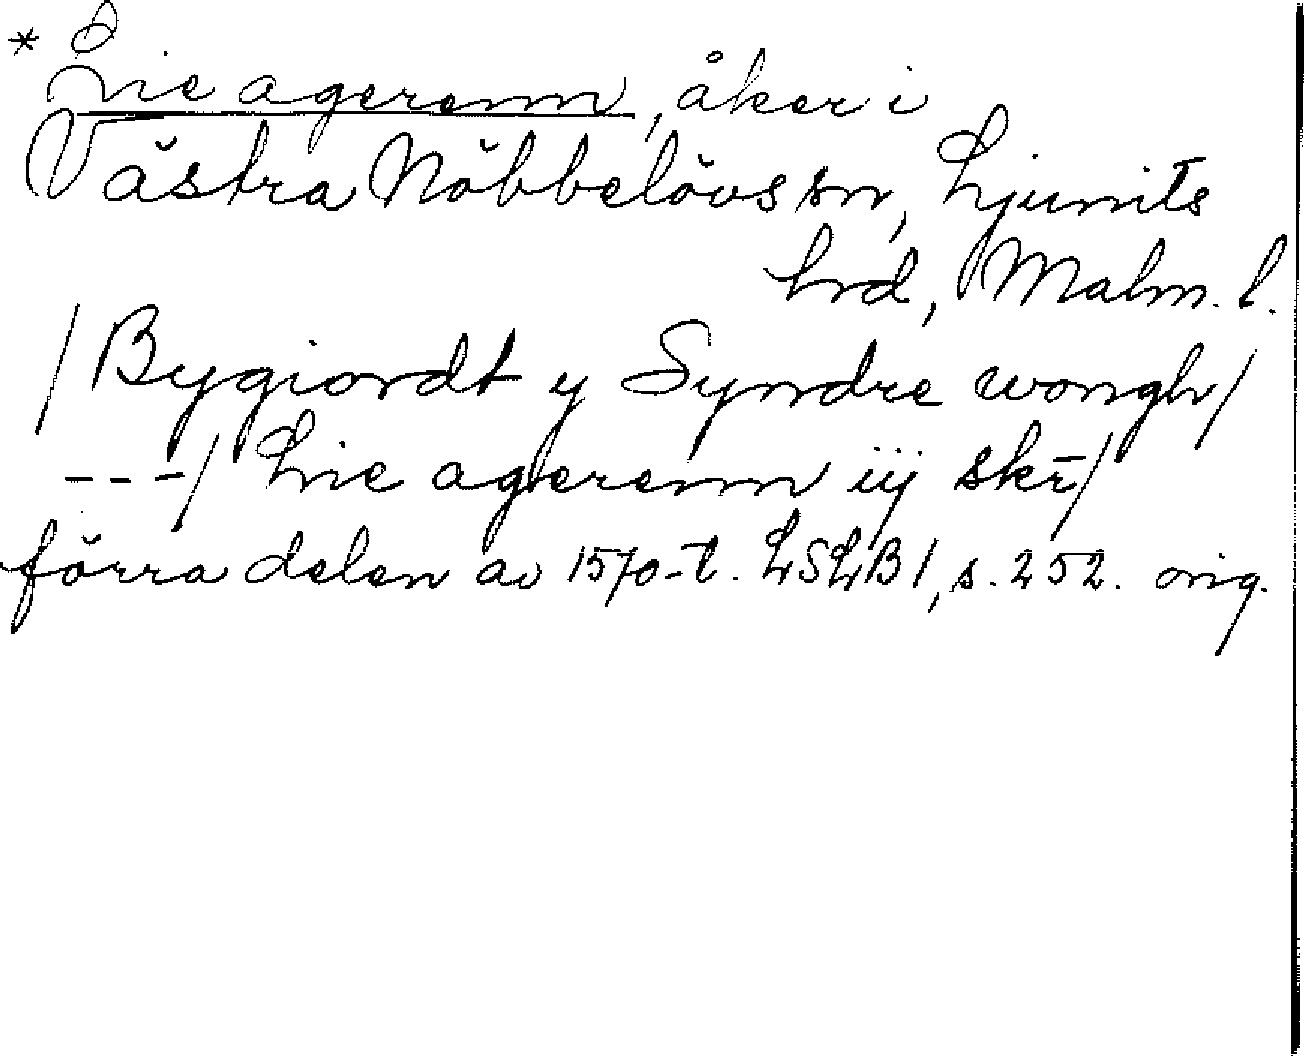 * Lie agerenn, åker i
Västra Nöbbelövs sn, Ljunits
hrd, Malm. l.
/Bygiordt y Syndre wongh/
---/ Lie agerenn iij skr̄/
förra delen av 1570-t. LSLB1, s. 252. orig.